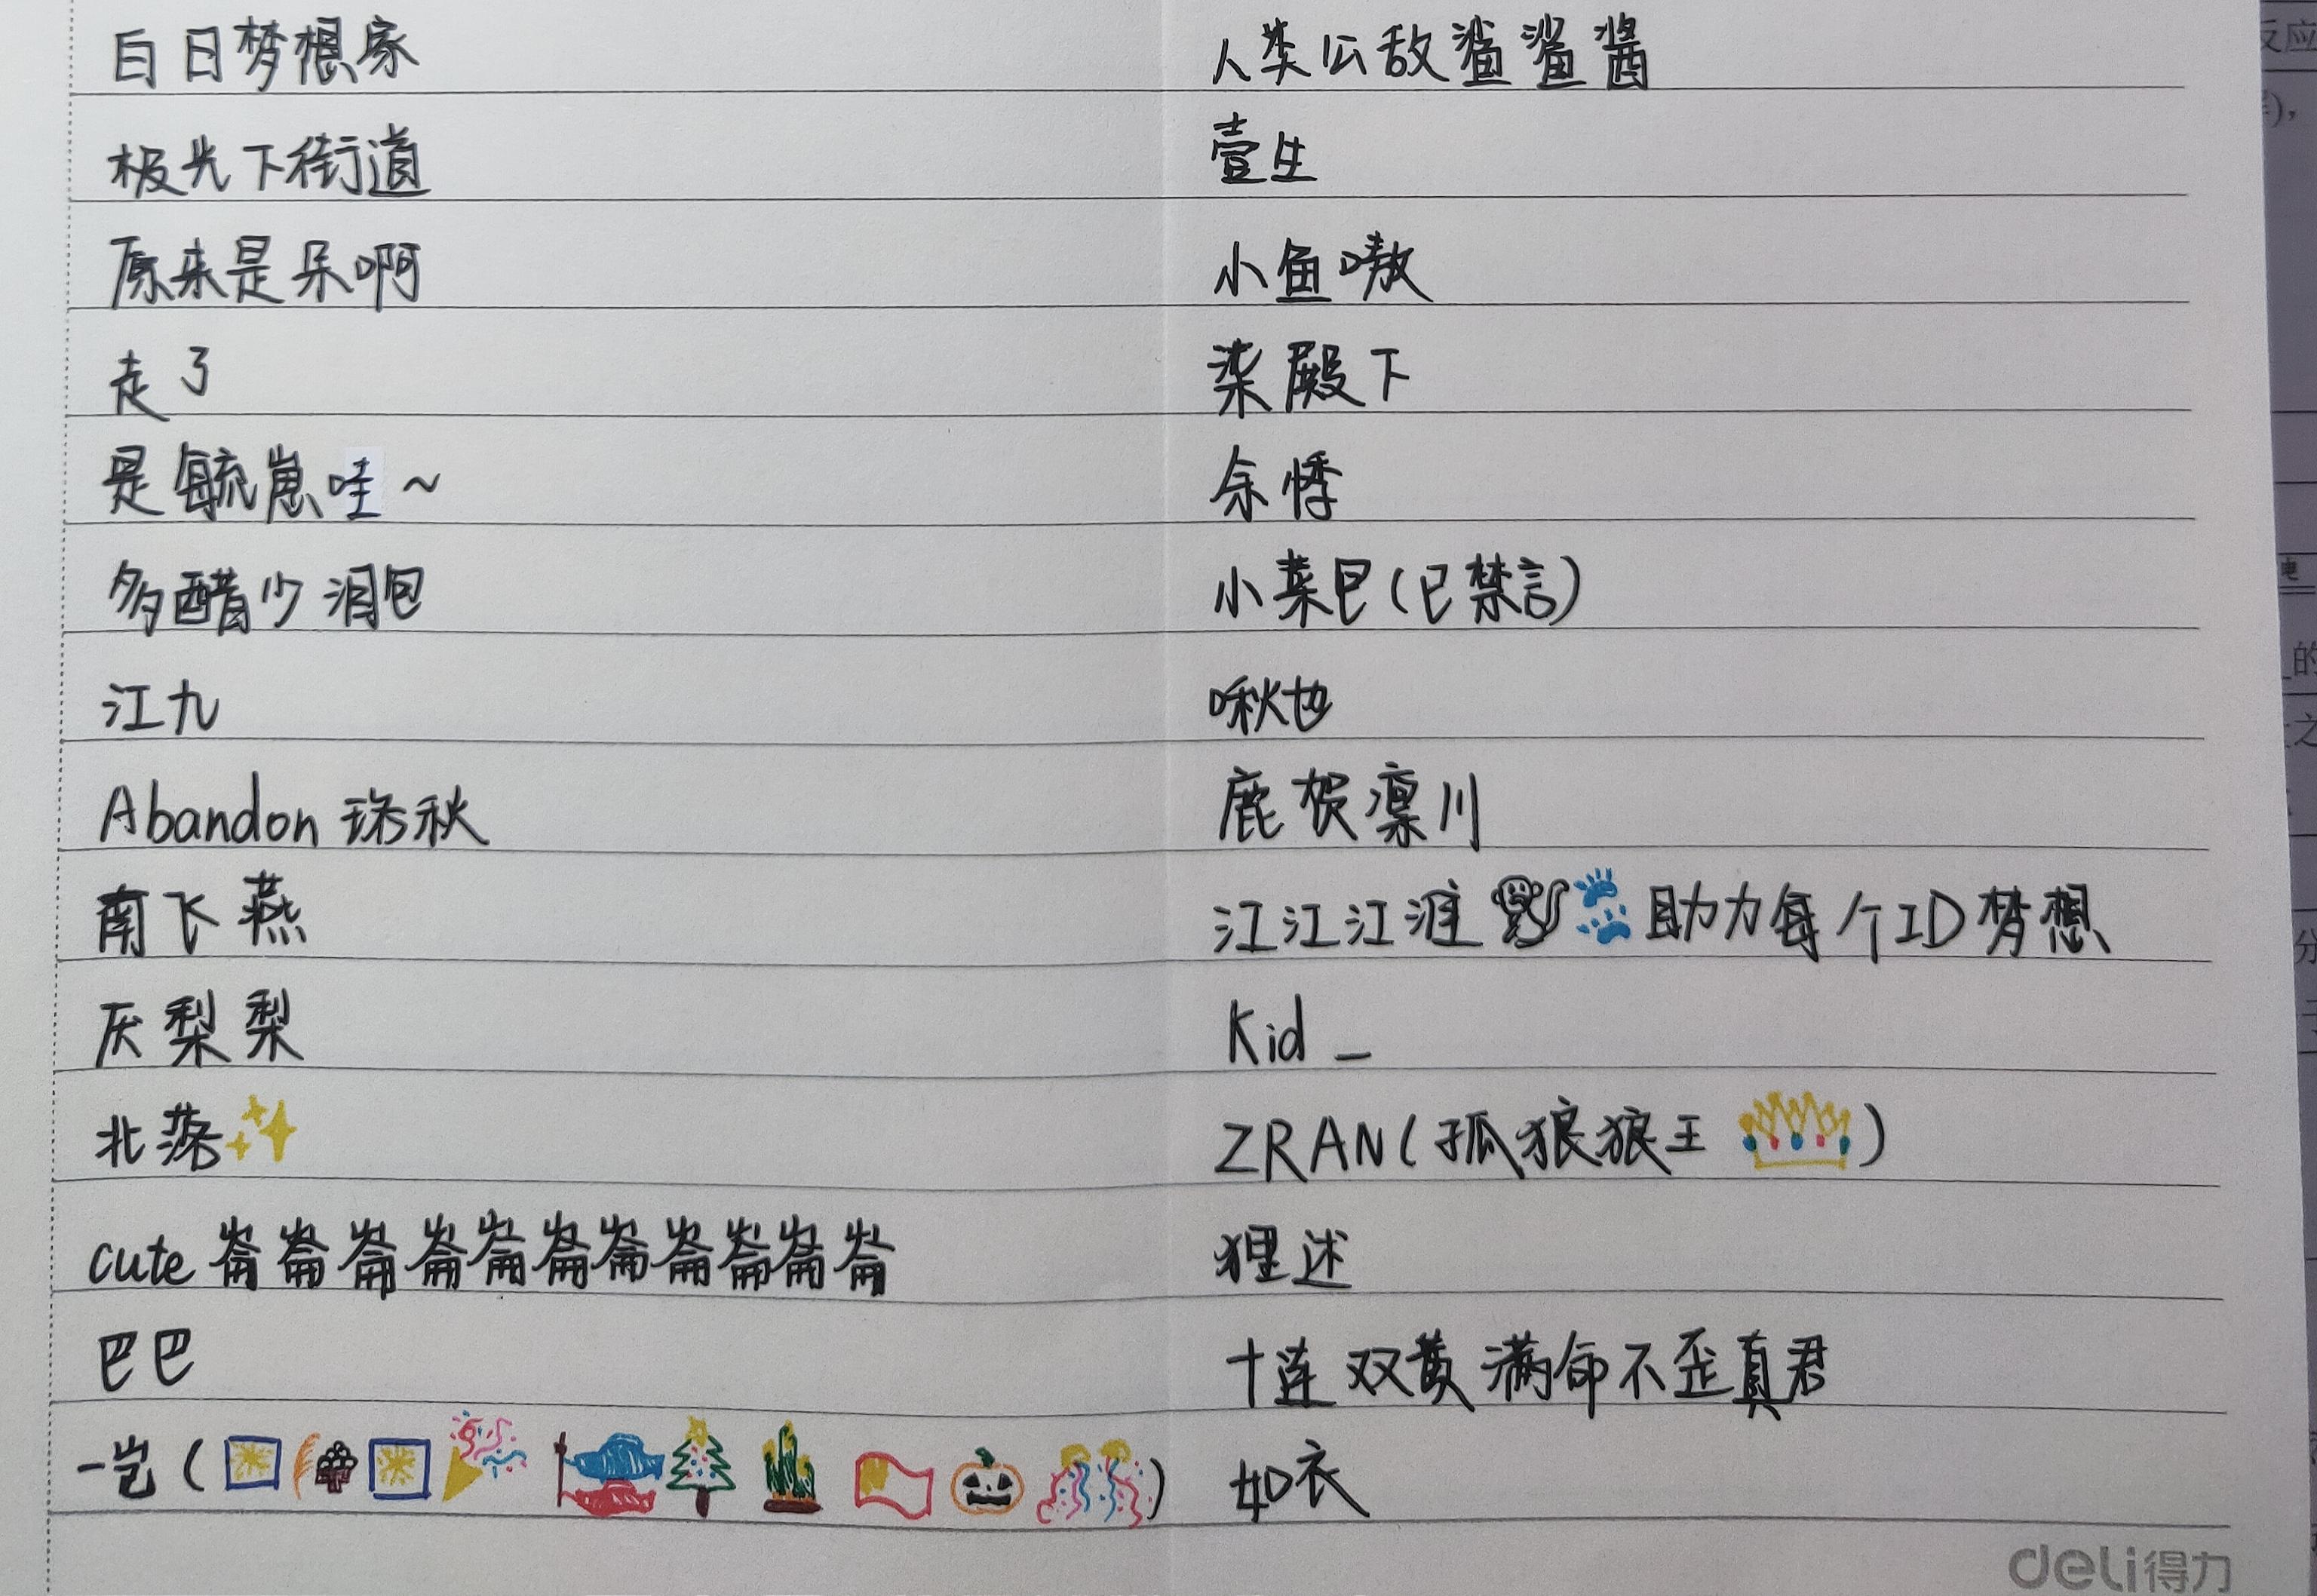 白日梦想家
极光下街道
原来是呆啊
走了
是毓崽哇~
多醋少泪包
江九
Abandon 珞秋
南飞燕
厌梨梨
北落✨
cute 崙崙崙崙崙崙崙崙崙崙崙
巴巴
一岂(🎇🎐🎇🎉🎏🎄🎍🎃🎊)
人类公敌鲨鲨酱
壹生
小鱼嗷
柒殿下
余悸
小菜巴(已禁言)
啾也
鹿贺凛川
江江江涯🐒🐾助力每个ID梦想
Kid _
ZRAN(孤狼狼王👑)
狸述
十连双黄满命不歪真君
如衣
deli得力
反应
的
之
分